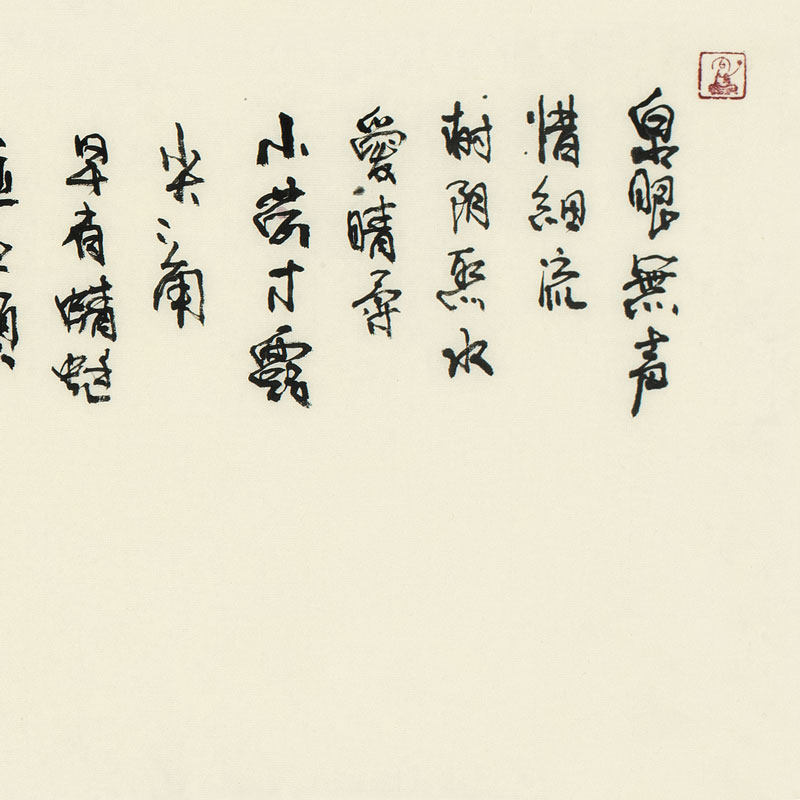 泉眼無声
惜細流
樹阴照水
愛晴柔
小荷才露
尖〻角
早有蜻蜓